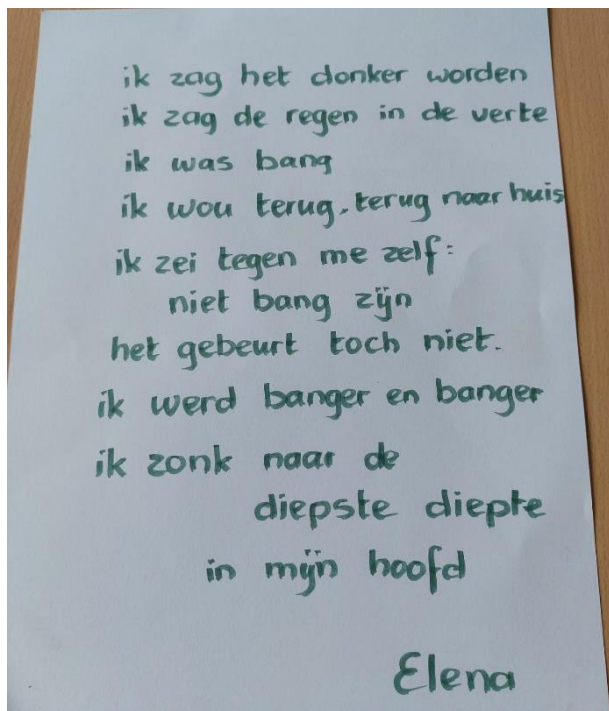 ik zag het donker worden
ik zag de regen in de verte
ik was bang
ik wou terug, terug naar huis
ik zei tegen me zelf:
niet bang zijn
het gebeurt toch niet.
ik werd banger en banger
ik zonk naar de
diepste diepte
in mijn hoofd
Elena